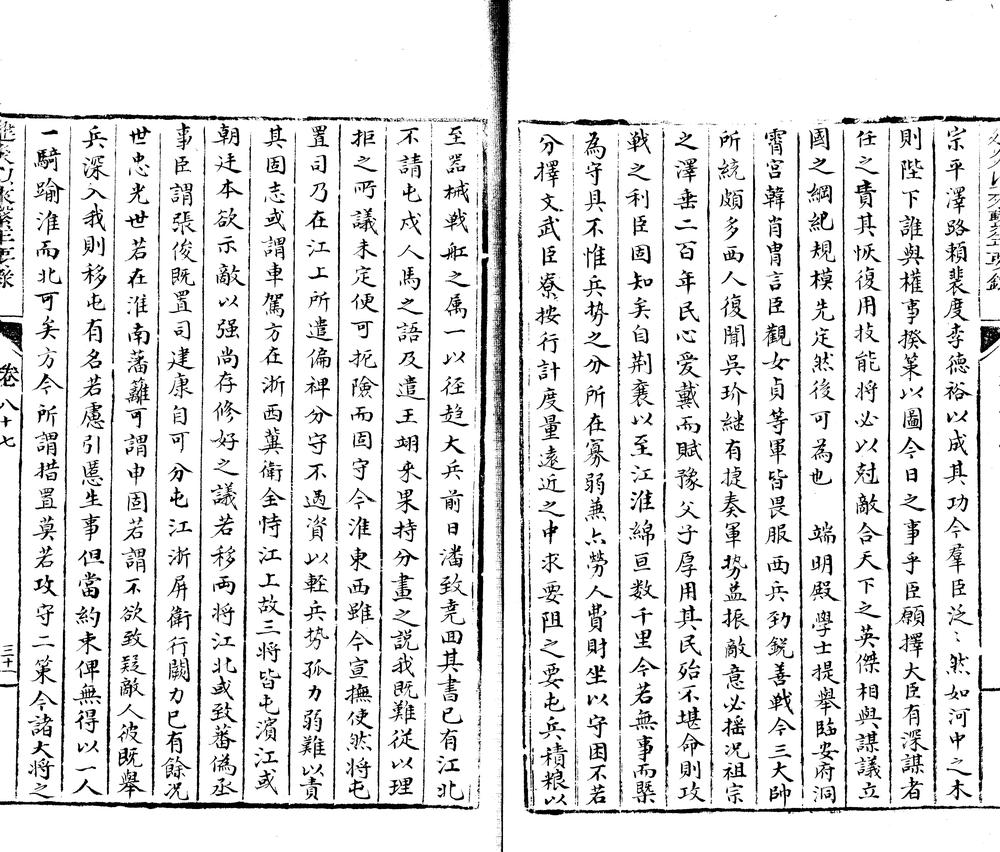 宗平澤路賴裴度李德裕以成其功今羣臣泛〻然如河中之木
則陛下誰與權事揆策以圖今日之事乎臣願擇大臣有深謀者
任之責其恢復用技能將必以尅敵合天下之英傑相與謀議立
國之綱紀規模先定然後可為也　端明殿學士提舉臨安府洞
霄宮韓肖胄言臣觀女貞等軍皆畏服西兵勁銳善戰今三大帥
所統頗多西人復聞吳玠継有捷奏軍势益振敵意必揺况祖宗
之澤垂二百年民心爱戴而賦豫父子厚用其民殆不堪命則攻
戰之利臣固知矣自荆襄以至江淮綿亘数千里今若無事而槩
為守具不惟兵势之分所在寡弱兼亦勞人費財坐以守困不若
分擇文武臣寮按行計度量遠近之中求要阻之要屯兵積粮以
至器械戦舡之属一以径趋大兵前日潘致堯囬其書已有江北
不請屯戍人馬之語及遣王翊来果持分畫之説我既難従以理
拒之所議未定便可扼險而固守今淮東西雖令宣撫使然將屯
置司乃在江上所遣偏裨分守不過資以輕兵势孤力弱難以責
其固志或謂車駕方在浙西冀衛全恃江上故三將皆屯濱江或
朝廷本欲示敵以强尚存修好之議若移两將江北或致蕃偽丞
事臣謂張俊既置司建康自可分屯江浙屏衛行闕力已有餘况
世忠光世若在淮南藩籬可謂申固若謂不欲致疑敵人彼既舉
兵深入我則移屯有名若慮引慝生事但當約束俾無得以一人
一騎踰淮而北可矣方今所謂措置莫若攻守二策今諸大將之
卷八十七
三十一